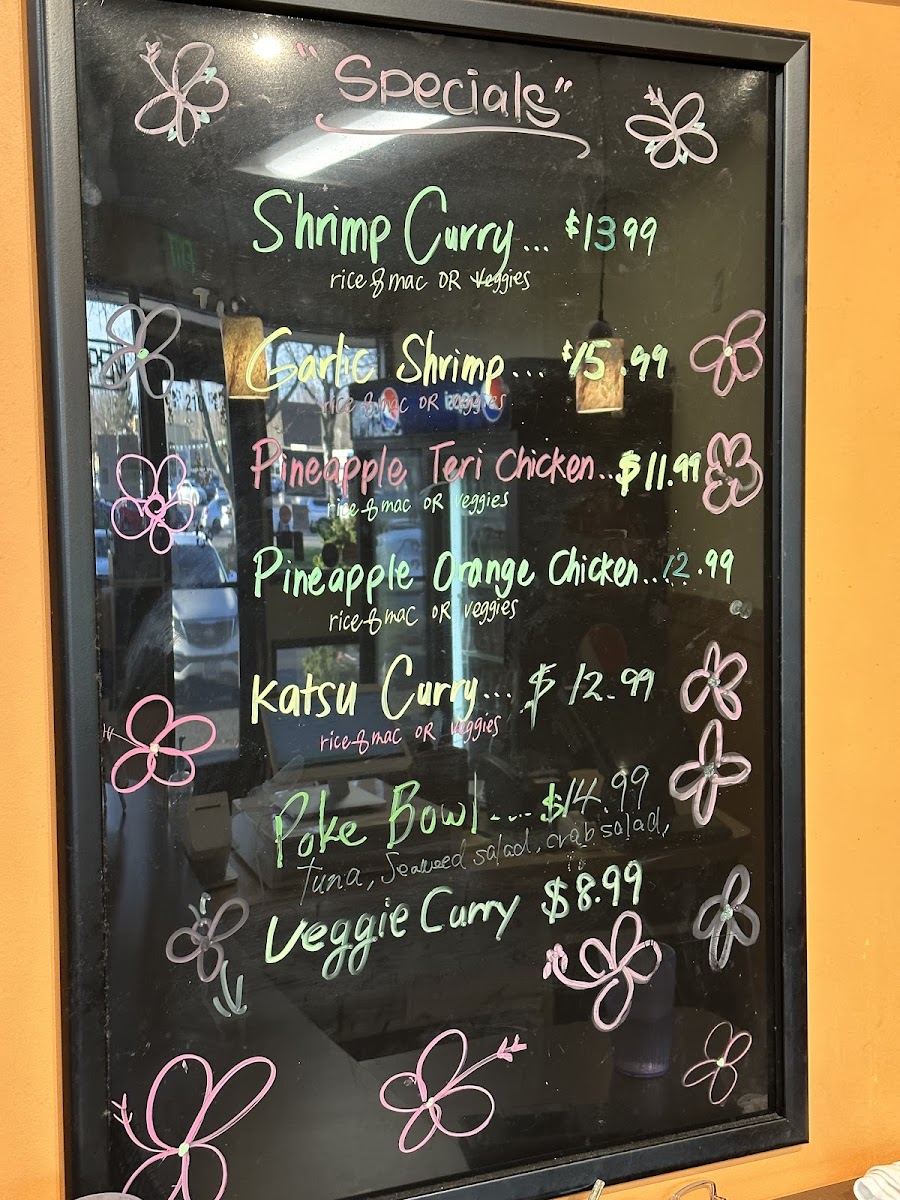 "Specials"
Shrimp Curry... $13.99
rice & mac OR veggies
Garlic Shrimp... $15.99
rice & mac OR veggies
Pineapple Teri Chicken... $11.99
rice & mac OR veggies
Pineapple Orange Chicken... 12.99
rice & mac OR veggies
Katsu Curry... $12.99
rice & mac OR veggies
Poke Bowl.... $14.99
Tuna, Seaweed salad, crab salad,
Veggie Curry $8.99